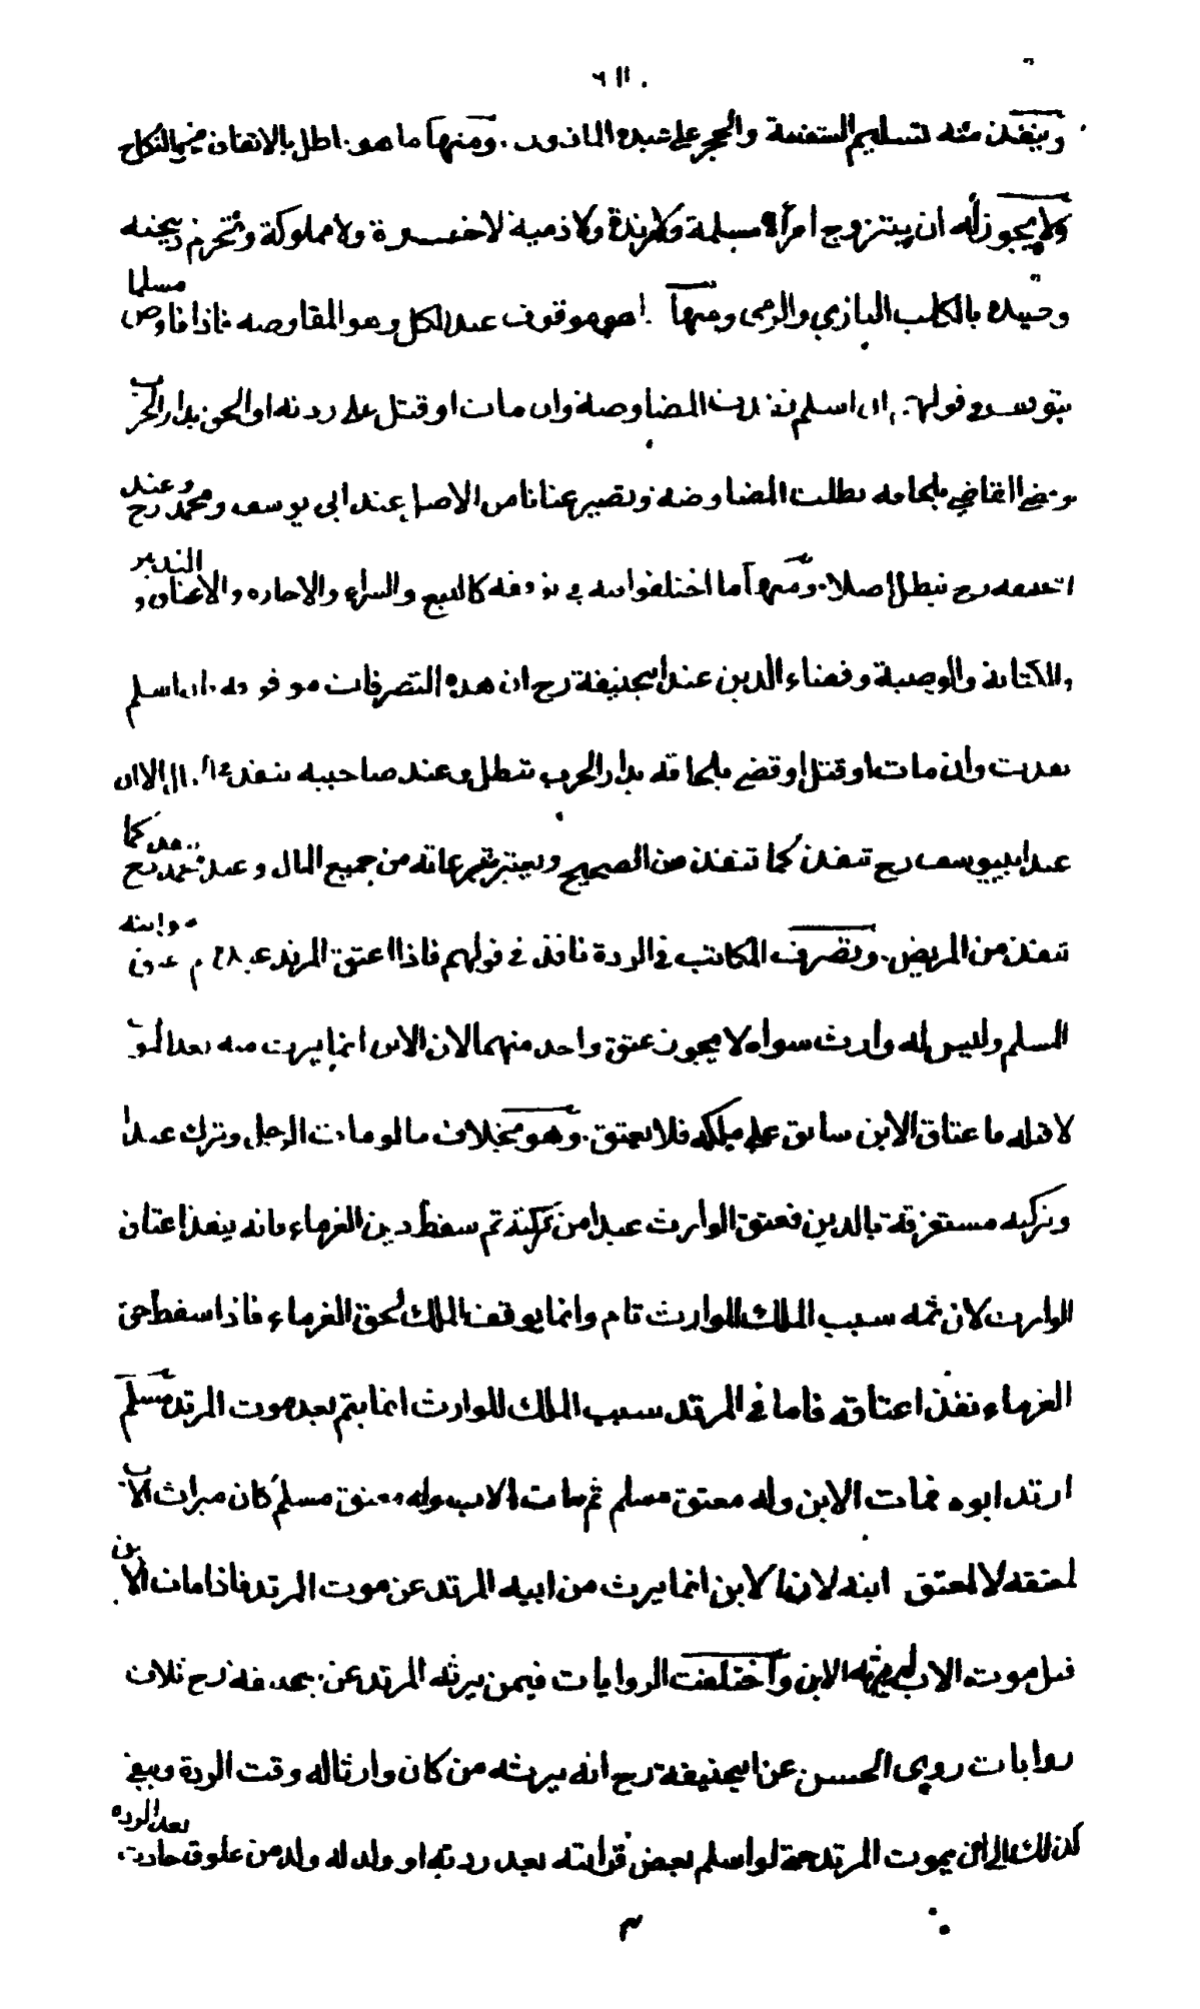 ٦١١
وينفذ منه تسليم الشفعة والحجر على عبده الماذون . ومنها ما هو باطل بالاتفاق منها النكاح
ولا يجوز له ان يتزوج امرأة مسلمة ولا مرتدة ولا ذمية لا حرة ولا مملوكة وتحرم ذبيحته
وصيده بالكلب البازي والرمى ومنها ما هو موقوف عند الكل وهو المفاوضة فاذا فاوض مسلما
يتوقف في قولهم ان اسلم نفذت المفاوضة وان مات او قتل على ردته او لحق بدار الحرب
وقضى القاضي بلحاقه بطلت المفاوضة وتصير عنانا من الاصل عند ابي يوسف ومحمد رح وعند
ابيحنيفه رح تبطل اصلا . ومنها ما اختلفوا فيه في توقفه كالبيع والشراء والاجاره والاعتاق والتدبير
والكتابة والوصية وقضاء الدين عند ابيحنيفة رح ان هذه التصرفات موقوفه ان اسلم
نفذت وان مات او قتل او قضى بلحاقه بدار الحرب تبطل وعند صاحبيه تنفذ الا ان
عند ابييوسف رح تنفذ كما تنفذ من الصحيح ويعتبر تبرعاته من جميع المال وعند محمد رح تنفذ كما
تنفذ من المريض . وتصرف المكاتب في الردة نافذ في قولهم فاذا اعتق المرتد عبده ثم عتق وابنه
المسلم وليس له وارث سواه لا يجوز عتق واحد منهما لان الابن انما يرث منه بعد الموت
لا قبله فاعتاق الابن سابق على ملكه فلا يعتق . وهو بخلاف ما لو مات الرجل وترك عبدا
وتركته مستغرقة بالدين فعتق الوارث عبدا من تركته ثم سقط دين الغرماء فانه ينفذ اعتاق
الوارث لان ثمه سبب الملك للوارث تام وانما يوقف الملك لحق الغرماء فاذا سقط حق
الغرماء نفذ اعتاقه فاما في المرتد سبب الملك للوارث انما يتم بعد موت المرتد مسلم
ارتد ابوه فمات الابن وله معتق مسلم ثم مات الاب وله معتق مسلم كان ميراث الاب
لمعتقه لا لمعتق ابنه لان الابن انما يرث من ابيه المرتد عن موت المرتد فاذا مات الابن
قبل موت الاب لم يرثه الابن واختلفت الروايات فيمن يرثه المرتد عن ابيحنيفة رح ثلاث
روايات روى الحسن عن ابيحنيفة رح انه يرثه من كان وارثا له وقت الردة وبقي
كذلك الى ان يموت المرتد حتى لو اسلم بعض قرابته بعد ردته او ولد له ولد من علوق حادث بعد الرده